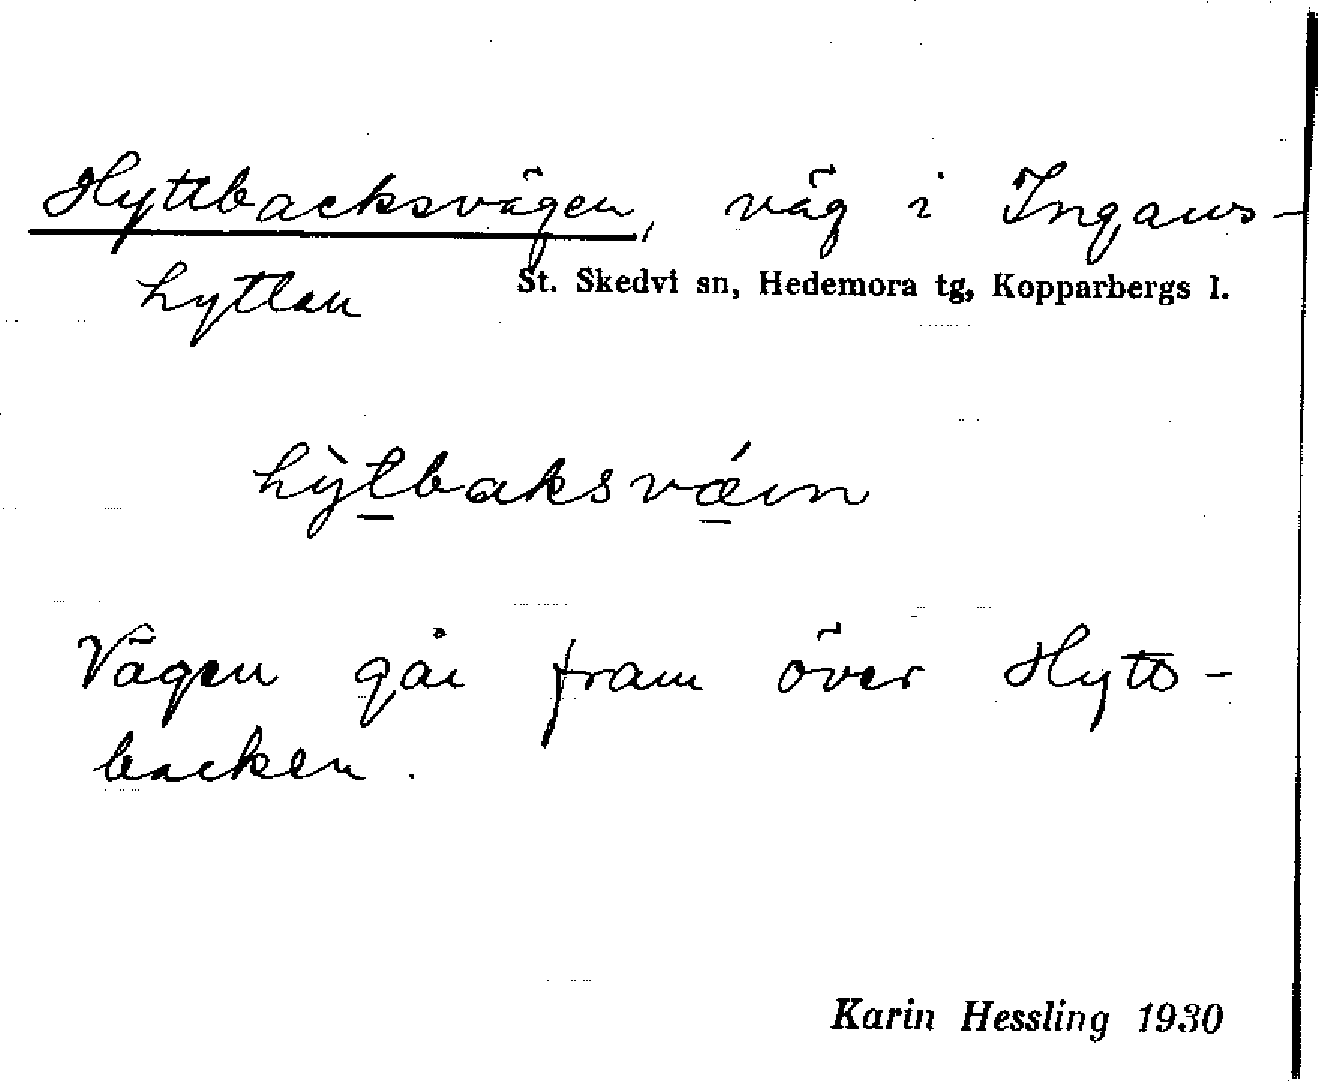 Hyttbacksvägen, väg i Ingans-
hyttan
St. Skedvi sn, Hedemora tg, Kopparbergs l.
hỳt̠baksvǽ̠ɩn
Vägen går fram över Hytt-
backen.
Karin Hessling 1930